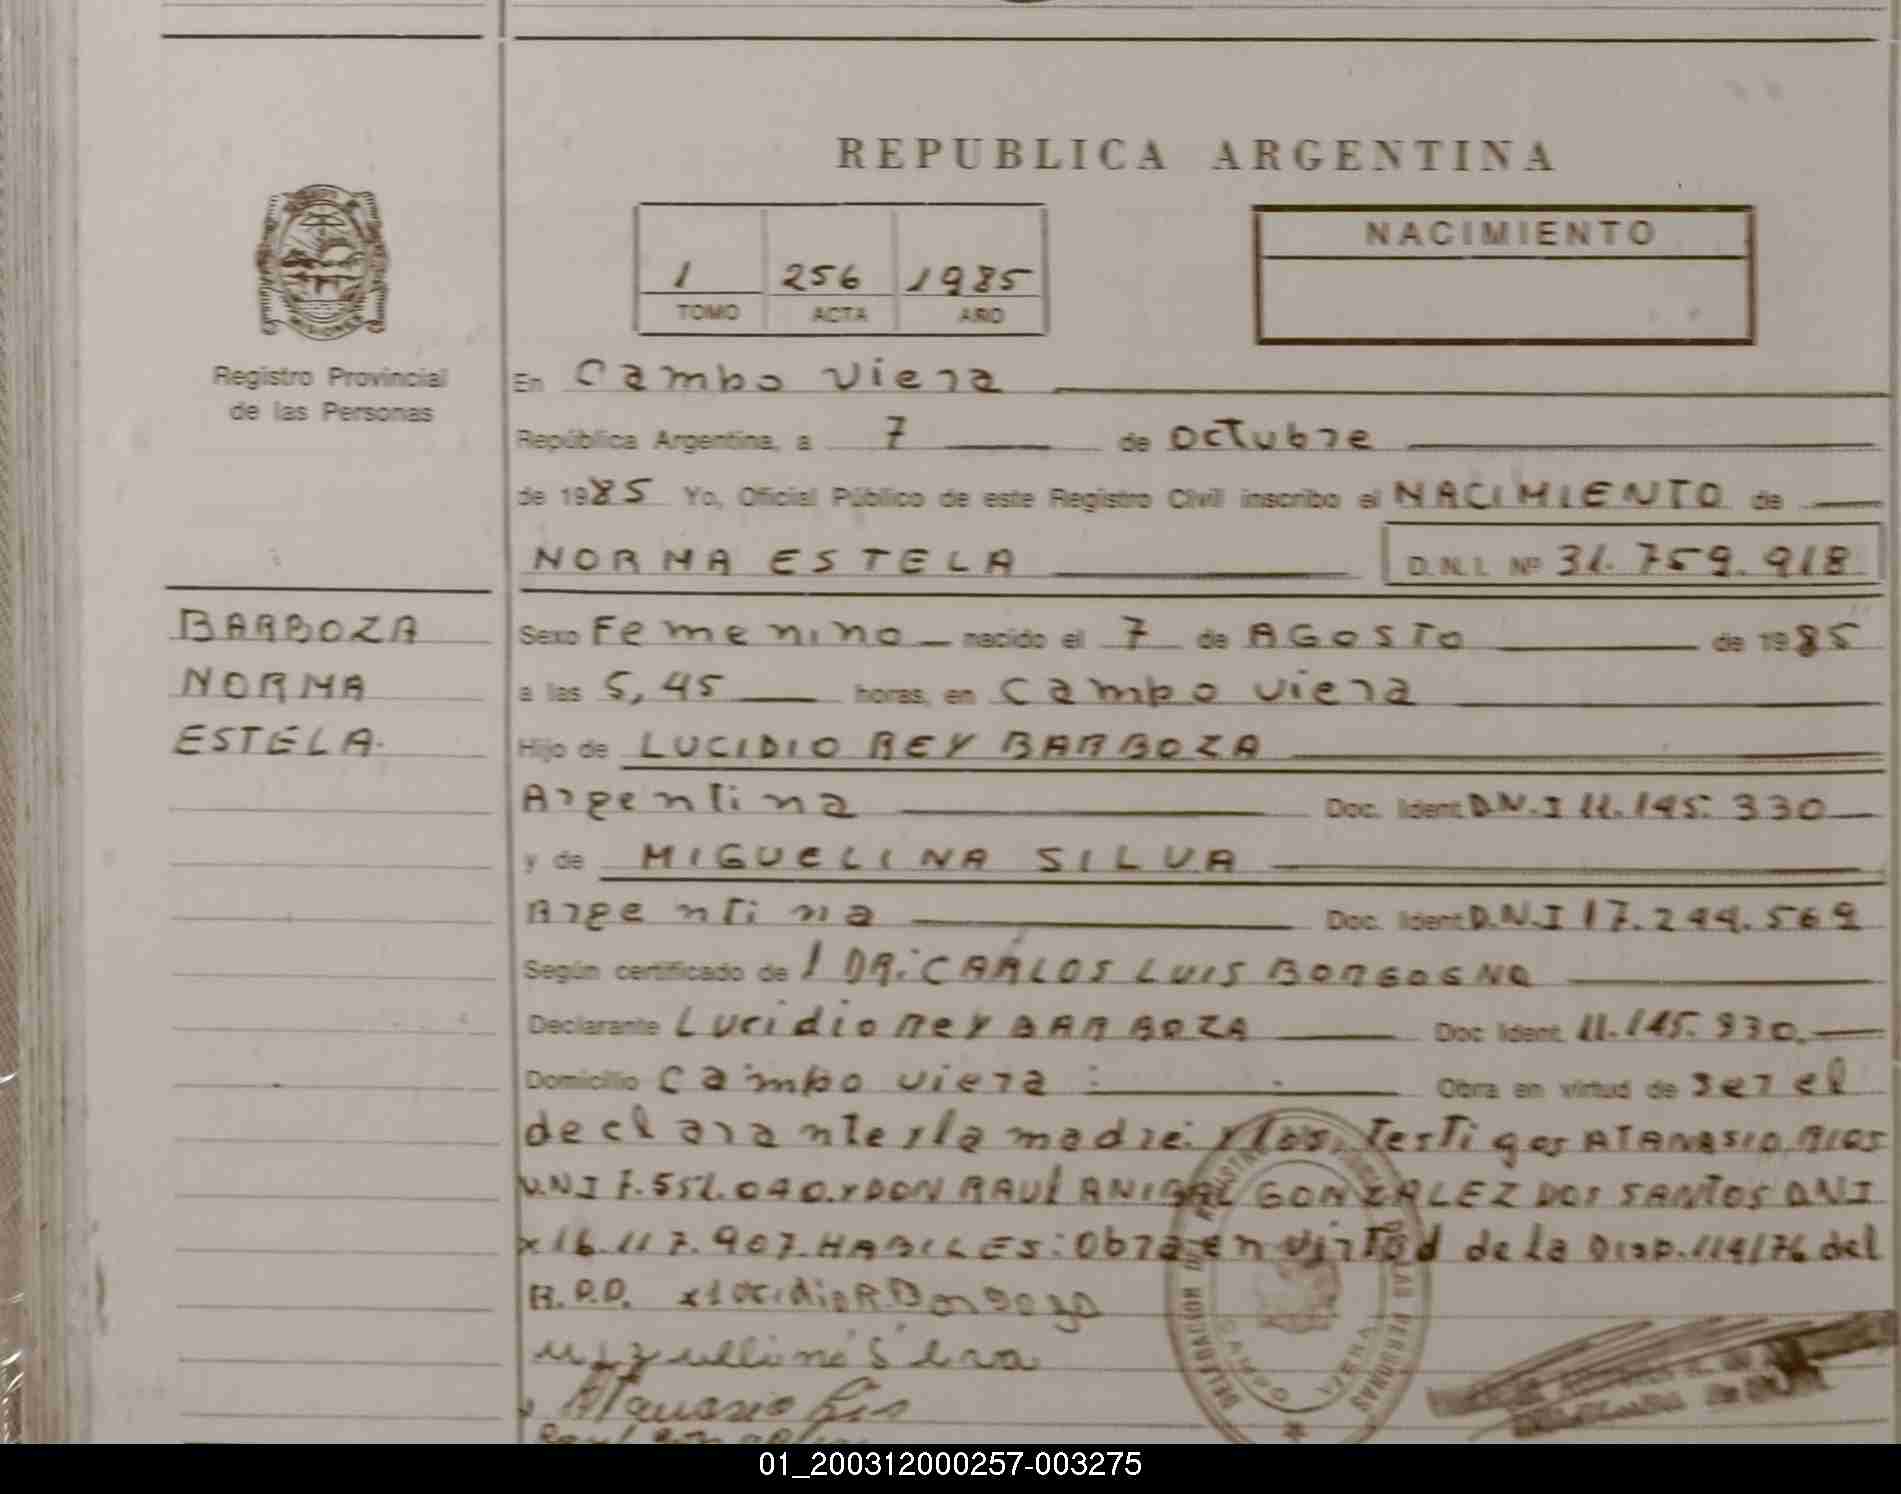 REPUBLICA ARGENTINA
MISIONES
Registro Provincial
de las Personas
1 256 1985
TOMO ACTA AÑO
NACIMIENTO
En Campo Viera
República Argentina, a 7 de Octubre
de 1985 Yo, Oficial Público de este Registro Civil inscribo el NACIMIENTO de
NORMA ESTELA D.N.I. Nº 31.759.918
BARBOZA
NORMA
ESTELA.
Sexo Femenino nacido el 7 de AGOSTO de 1985
a las 5,45 horas, en Campo Viera
Hijo de LUCIDIO REY BARBOZA
Argentina Doc. Ident. D.N.I 11.145.330
y de MIGUELINA SILVA
Argentina Doc. Ident. D.N.I 17.244.569
Según certificado de DR. CARLOS LUIS BORGOGNO
Declarante Lucidio Rey BARBOZA Doc. Ident. 11.145.330
Domicilio Campo Viera Obra en virtud de ser el
declarante y la madre. y los testigos ATANASIO RIOS
D.N.I 7.551.040. y DON RAUL ANIBAL GONZALEZ DOS SANTOS D.N.I
16.117.907. HABILES: Obra en virtud de la Disp. 114/76 del
R.P.P. x Lucidio R. Barboza
Silva
Atanasio
DELEGACION DEL REGISTRO DE LAS PERSONAS
CAMPO VIERA
01_200312000257-003275